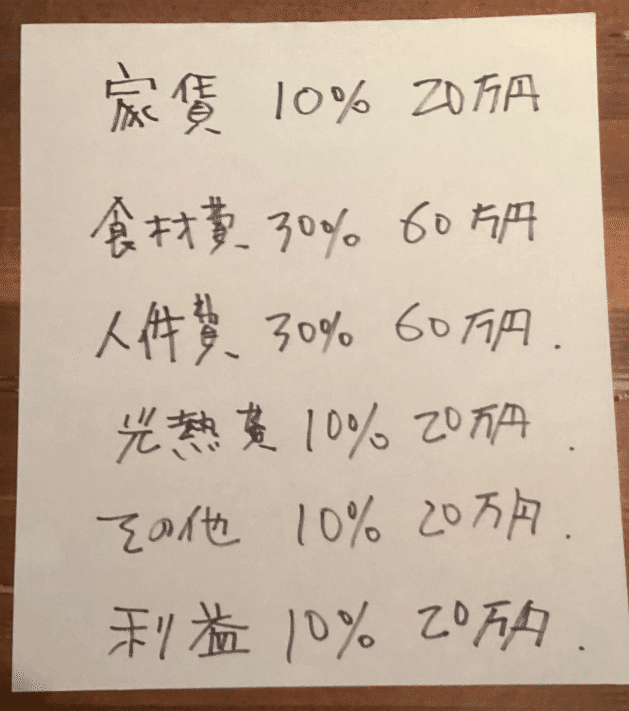 家賃 10% 20万円
食材費 30% 60万円
人件費 30% 60万円.
光熱費 10% 20万円.
その他 10% 20万円.
利益 10% 20万円.